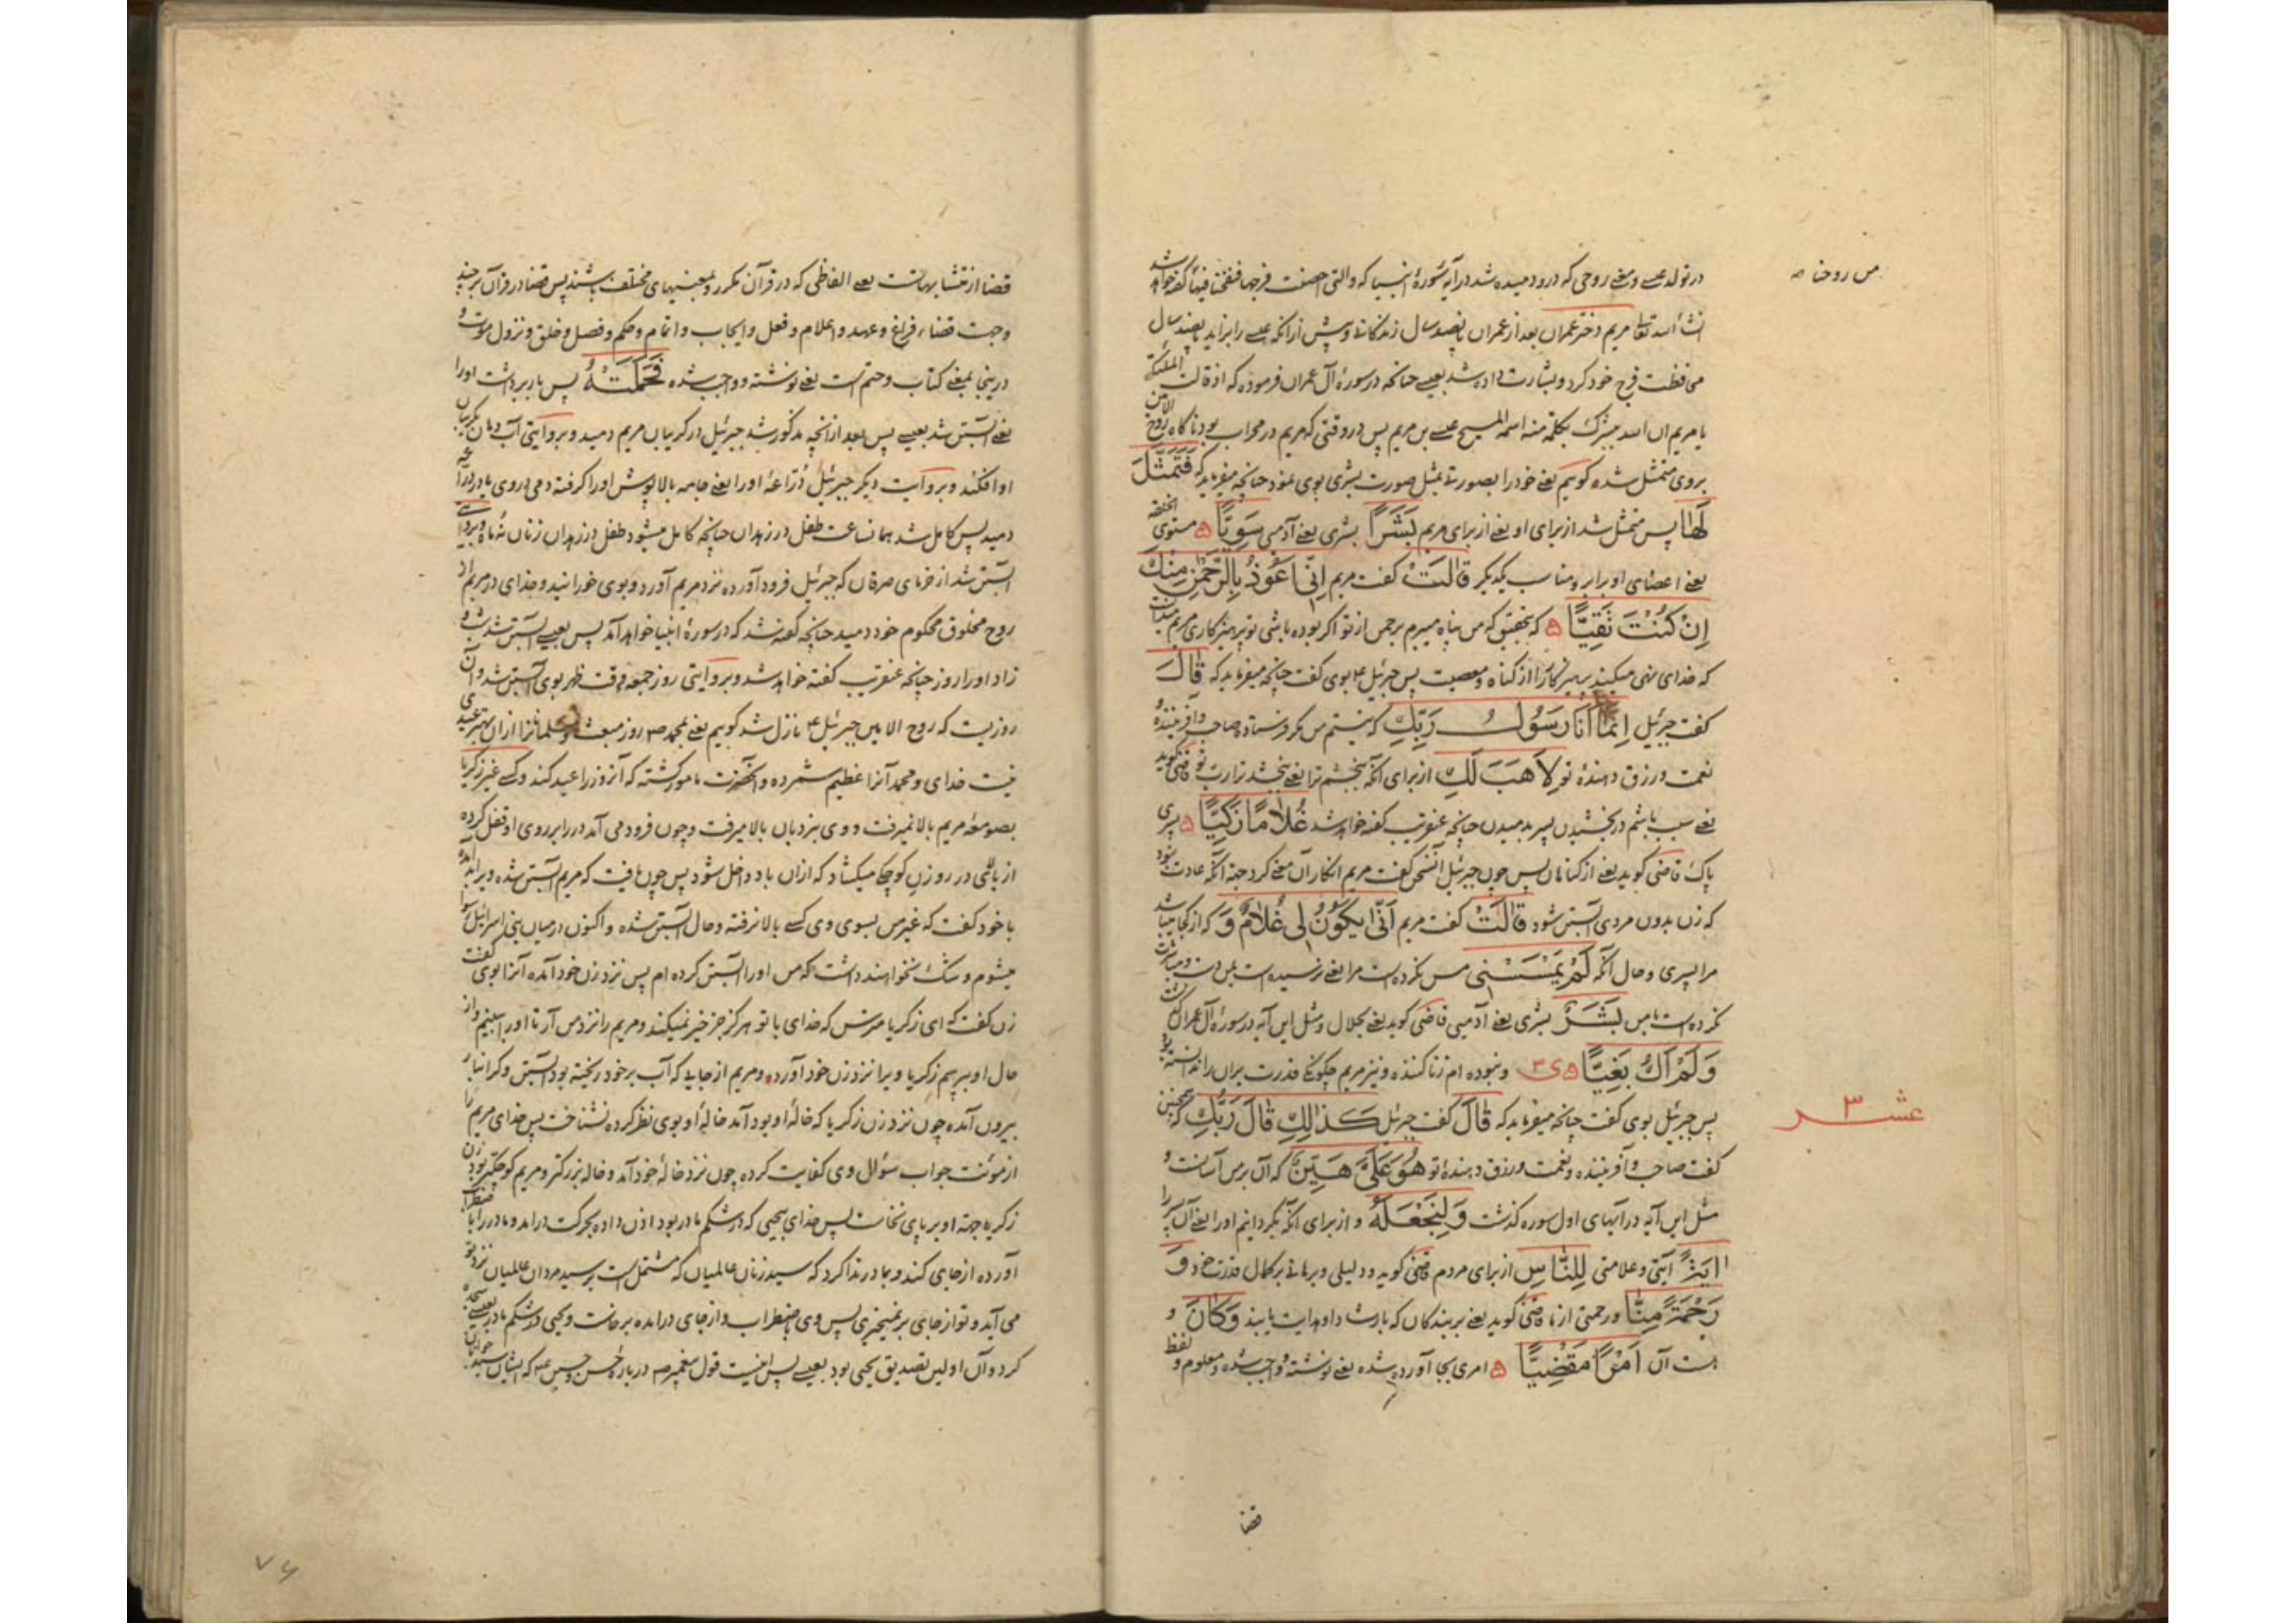 در تولد عیسی و معنی روحی که در او دمیده شد در آیه سورهٔ انبیا که والتی احصنت فرجها فنفخنا فیها گفته خواهد شد
من روحنا
انشاء الله تعالی مریم دختر عمران بعد از عمران پانصد سال زندگانی و پیش از آنکه عیسی را بزاید پانصد سال
محافظت فرج خود کرد و بشارت داده شد بعیسی چنانچه در سورهٔ آل عمران فرموده که اذ قالت الملئکة
یا مریم ان الله یبشرک بکلمة منه اسمه المسیح عیسی بن مریم پس در وقتی که مریم در محراب بود ناگاه روح الامین
بروی متمثل شده گوییم یعنی خود را بصورتی بمثل صورت بشری بوی نمود چنانچه میفرماید که فَتَمَثَّلَ
لَهٰا پس متمثل شد از برای او یعنی از برای مریم بَشَرًا بشری یعنی آدمی سَوِیًّا مستوی الخلقه
یعنی اعضای او برابر و مناسب یکدیگر قٰالَتْ گفت مریم اِنّی اَعُوذُ بِالرَّحْمٰنِ مِنْكَ
اِنْ كُنْتَ تَقِیًّا که بتحقیق که من پناه میبرم برحمن از تو اگر بوده باشی تو پرهیزکاری مریم میدانست
که خدای نهی میکند پرهیزکار را از گناه و معصیت پس جبرئیل ع بوی گفت چنانچه میفرماید که قٰالَ
گفت جبرئیل اِنَّمٰا اَنَا رَسُولُ رَبِّكِ که نیستم من مگر فرستادهٔ صاحب و آفریننده و
نعمت و رزق دهندهٔ تو لِاَهَبَ لَكِ از برای آنکه ببخشم ترا یعنی ببخشد ترا رب تو قاضی گوید
یعنی سبب باشم در بخشیدن پسر بدمیدن چنانچه عنقریب گفته خواهد شد غُلٰامًا زَكِیًّا پسری
پاک قاضی گوید یعنی از گناهان پس چون جبرئیل آن سخن گفت مریم انکار آن معنی کرد جهة آنکه عادت نبود
که زن بدون مردی آبستن شود قٰالَتْ گفت مریم اَنّٰی یَكُونُ لی غُلٰامٌ وَ که از کجا میباشد
مرا پسری و حال آنکه لَمْ یَمْسَسْنی مس نکرده است مرا یعنی نرسیده است بمن دست و مباشرت
نکرده است با من بَشَرٌ بشری یعنی آدمیی قاضی گوید یعنی بحلال و مثل این آیه در سورهٔ آل عمران گذشت
وَ لَمْ اَكُ بَغِیًّا و نبوده ام زنا کننده و نیز مریم چگونگی قدرت بران را ندانسته بود
عشر ٣
پس جبرئیل بوی گفت چنانچه میفرماید که قٰالَ گفت جبرئیل كَذٰلِكِ قٰالَ رَبُّكِ که همچنین
گفت صاحب و آفریننده و نعمت و رزق دهندهٔ تو هُوَ عَلَیَّ هَیِّنٌ که آن بر من آسانست و
مثل این آیه در آیهای اول سوره گذشت وَ لِنَجْعَلَهُ و از برای آنکه بگردانیم او را یعنی آن پسر را
اٰیَةً آیتی و علامتی لِلنّٰاسِ از برای مردم قاضی گوید و دلیلی و برهانی بر کمال قدرت خود وَ
رَحْمَةً مِنّٰا و رحمتی از ما قاضی گوید یعنی بر بندگان که بارشاد او هدایت یابند وَ كٰانَ و
هست آن اَمْرًا مَقْضِیًّا امری بجا آورده شده یعنی نوشته و واجب شده و معلوم و لفظ
قضا
قضا از متشابهاتست یعنی الفاظی که در قرآن مکرر و بمعنیهای مختلف باشند پس قضا در قرآن بر چند
وجهست قضاء فراغ و عهد و اعلام و فعل و ایجاب و اتمام و حکم و فصل و خلق و نزول موت و
درینجا بمعنی کتاب و حتم است یعنی نوشته و واجب شده فَحَمَلَتْهُ پس بار برداشت او را
یعنی آبستن شد بعیسی پس بعد از آنچه مذکور شد جبرئیل در گریبان مریم دمید و بروایتی آب دهان بگریبان
او افکند و بروایت دیگر جبرئیل دُرّاعهٔ او را یعنی جامه بالاپوش او را گرفته دمی در وی
دمید پس کامل شد همانساعت طفل در زهدان چنانچه کامل میشود طفل در زهدان زنان نه ماه
آبستن شد از خرمای صرفان که جبرئیل فرود آورده نزد مریم آورد و بوی خورانید و خدای در مریم از
روح مخلوق محکوم خود دمید چنانچه گفته شد که در سورهٔ انبیا خواهد آمد پس بعیسی آبستن شد شب و
زاد او را روز چنانچه عنقریب گفته خواهد شد و بروایتی روز جمعه وقت ظهر بوی آبستن شد و آن
روزیست که روح الامین جبرئیل ع نازل شد گوییم یعنی بمحمد ص روز مبعث و مسلمانانرا از آن بهتر عیدی
نیست خدای و محمد آنرا عظیم شمرده و آنحضرت مأمور گشته که آنروز را عید کند و کسی غیر زکریا
بصومعهٔ مریم بالا نمیرفت و وی بنردبان بالا میرفت و چون فرود می آمد در را بر روی او قفل کرده
از بالای در روزن کوچکی میگشاد که از آن باد داخل شود پس چون یافت که مریم آبستن شده ویرا بد آمده
با خود گفت که غیر من بسوی وی کسی بالا نرفته و حال آبستن شده و اکنون در میان بنی اسرائیل رسوا
میشوم و شک نخواهند داشت که من او را آبستن کرده ام پس نزد زن خود آمده آنرا بوی گفت
زن گفت که ای زکریا مترس که خدای با تو هرگز جز خیر نمیکند و مریم را نزد من آر تا او را ببینم و از
حال او بپرسم زکریا ویرا نزد زن خود آورد و مریم از جایی که آب بر خود ریخته بود آبستن و گرانبار
بیرون آمده چون نزد زن زکریا که خالهٔ او بود آمد خالهٔ او بوی نظر کرده نشناخت پس خدای مریم را
از مؤنت جواب سؤال وی کفایت کرده چون نزد خالهٔ خود آمد و خاله بزرگتر و مریم کوچکتر بود زن
زکریا جهة او بر پای نخاست پس خدای یحیی که در شکم مادر بود اذن داده بحرکت درآمد و مادر را باضطراب
آورده از جای کند و بمادر ندا کرد که سیّد زنان عالمیان که مشتمل است بر سیّد مردان عالمیان نزد تو
می آید و تو از جای بر نمیخیزی پس وی باضطراب و از جای درآمده برخاست و یحیی در شکم مادر بعیسی سجده
کرد و آن اولین تصدیق یحیی بود بعیسی پس اینست قول پیغمبر ص دربارهٔ حسن و حسین ع که ایشان سید جوانان
٧٤